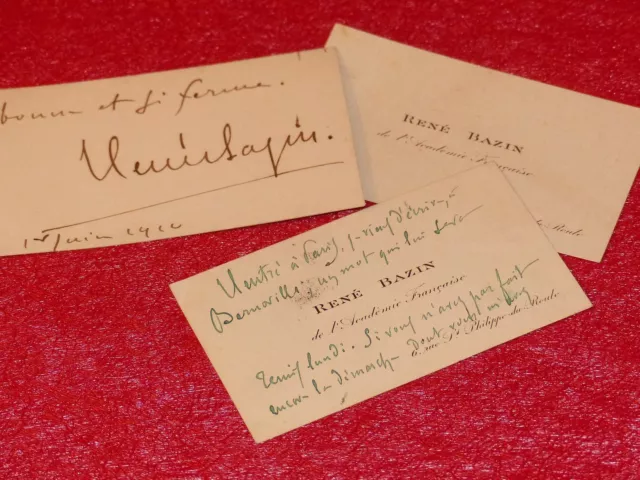 bonne et si ferme.
René Bazin.
1er Juin 1912
RENÉ BAZIN
de l'Académie Française
du Roule
Rentré à Paris, je viens d'écrire, à
Bernoville, un mot qui lui sera
RENÉ BAZIN
de l'Académie Française
remis lundi. Si vous n'avez pas fait
6, rue St Philippe du Roule
encore la démarche dont vous